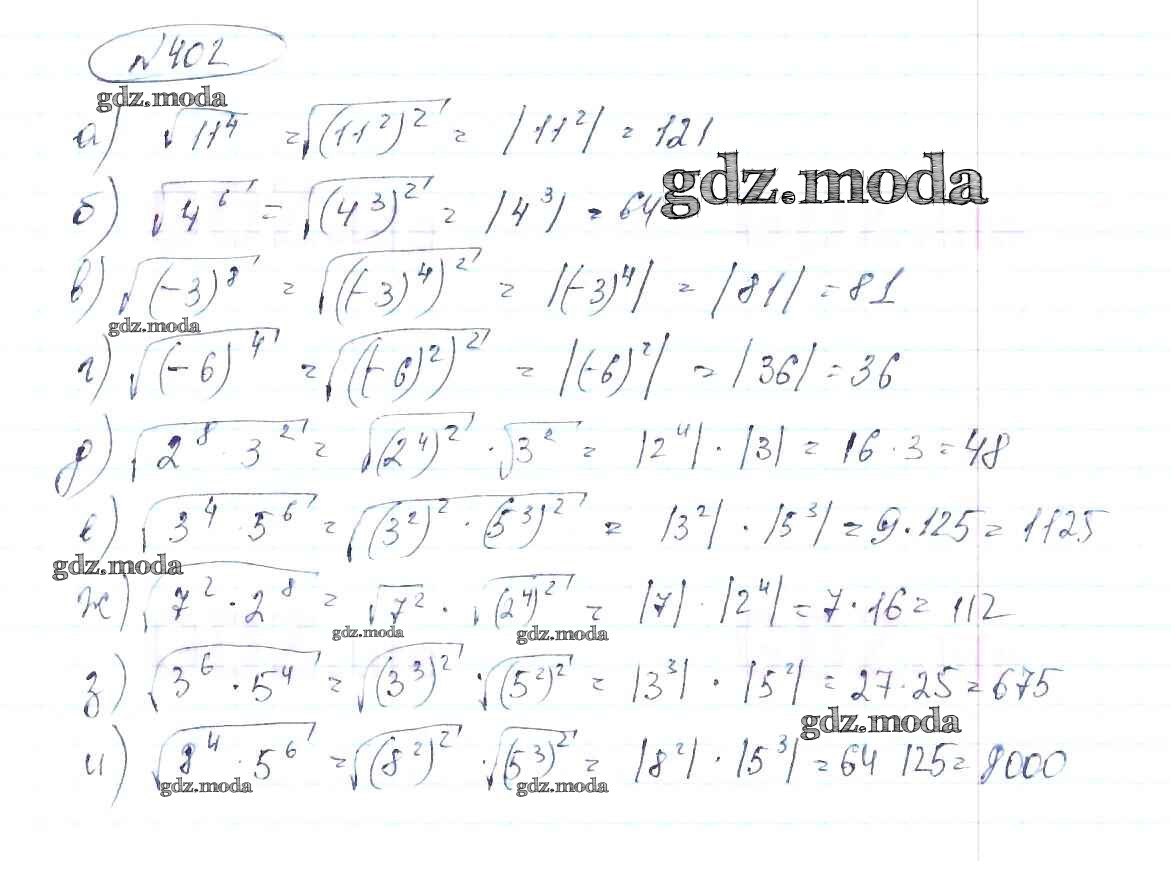 №402
gdz.moda
а) √11⁴ = √(11²)² = |11²| = 121
gdz.moda
б) √4⁶ = √(4³)² = |4³| = 64
в) √(-3)⁸ = √((-3)⁴)² = |(-3)⁴| = |81| = 81
gdz.moda
г) √(-6)⁴ = √((-6)²)² = |(-6)²| = |36| = 36
д) √2⁸·3² = √(2⁴)² · √3² = |2⁴| · |3| = 16·3 = 48
е) √3⁴·5⁶ = √(3²)²·(5³)² = |3²| · |5³| = 9·125 = 1125
gdz.moda
ж) √7²·2⁸ = √7² · √(2⁴)² = |7| · |2⁴| = 7·16 = 112
gdz.moda gdz.moda
з) √3⁶·5⁴ = √(3³)² · √(5²)² = |3³| · |5²| = 27·25 = 675
gdz.moda
и) √8⁴·5⁶ = √(8²)² · √(5³)² = |8²| · |5³| = 64 125 = 8000
gdz.moda gdz.moda